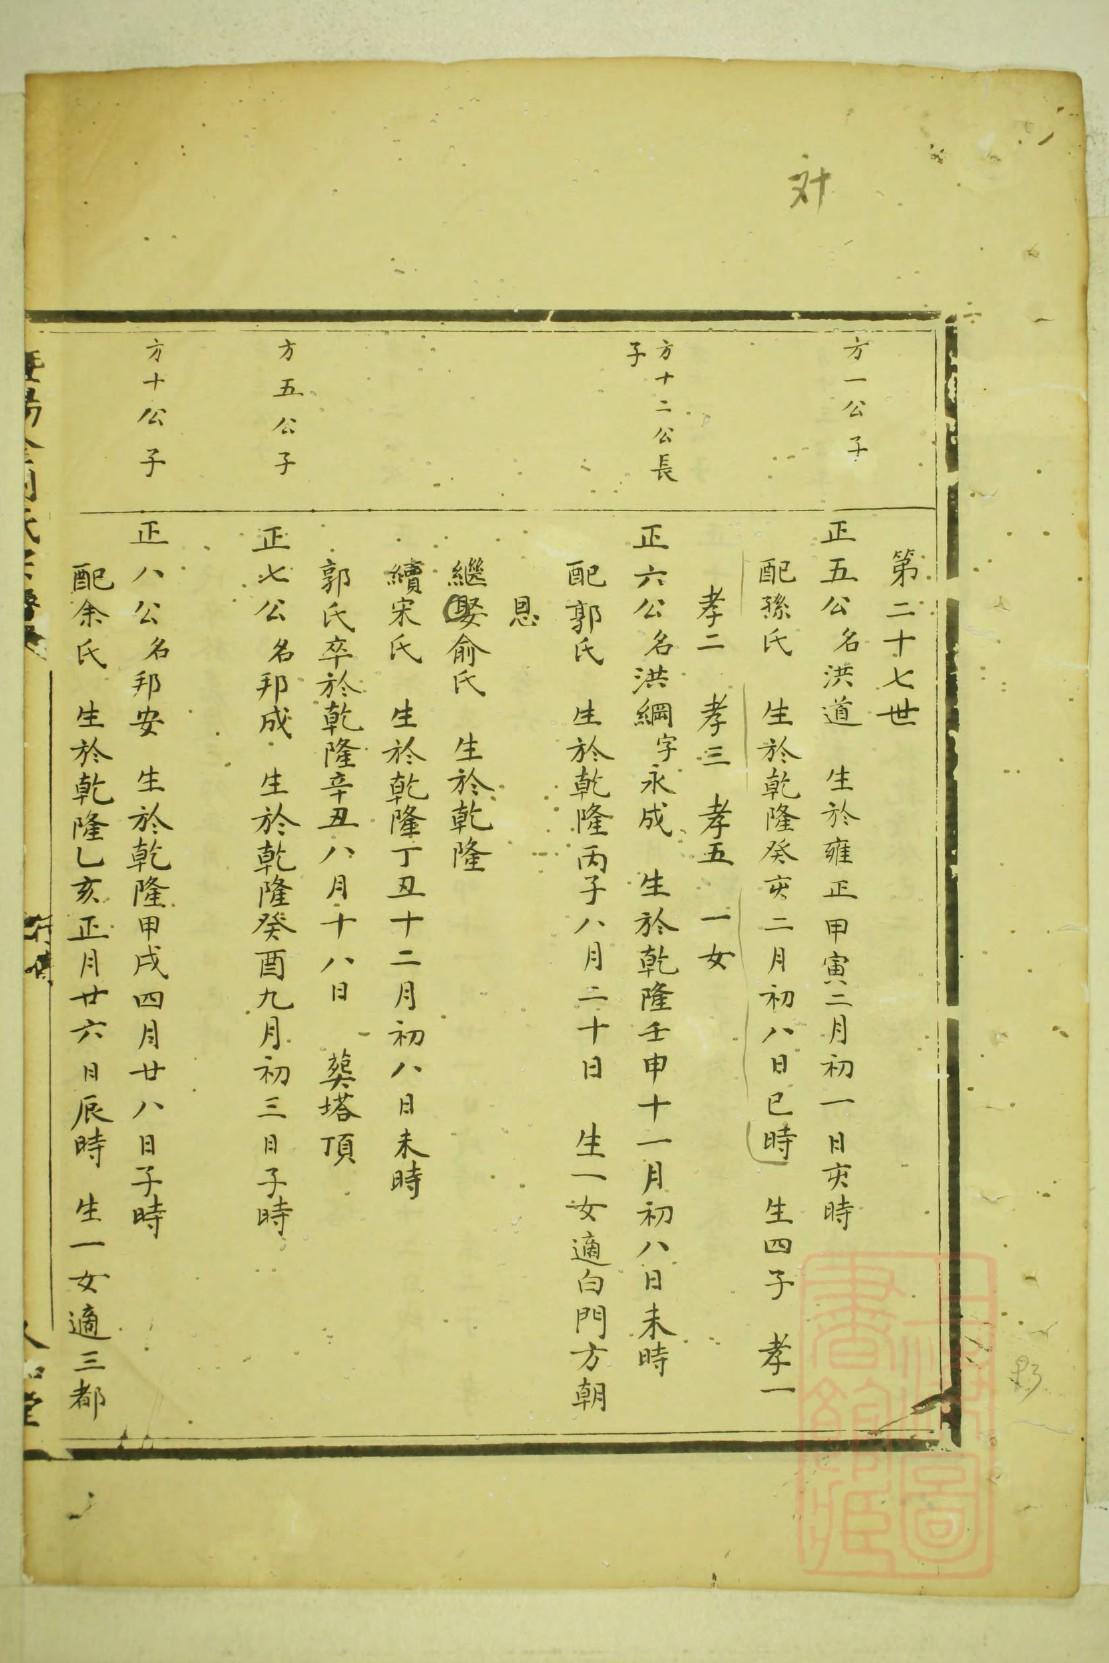 对
第二十七世
方一公子
正五公名洪道 生於雍正甲寅二月初一日亥時
配孫氏 生於乾隆癸亥二月初八日巳時 生四子 孝一
孝二 孝三 孝五 一女
方十二公長
子
正六公名洪綱字永成 生於乾隆壬申十一月初八日未時
配郭氏 生於乾隆丙子八月二十日 生一女適白門方朝
恩
繼娶俞氏 生於乾隆
續宋氏 生於乾隆丁丑十二月初八日未時
郭氏卒於乾隆辛丑八月十八日 葬塔頂
方五公子
正七公名邦成 生於乾隆癸酉九月初三日子時
方十公子
正八公名邦安 生於乾隆甲戌四月廿八日子時
配余氏 生於乾隆乙亥正月廿六日辰時 生一女適三都
上海圖
書館藏